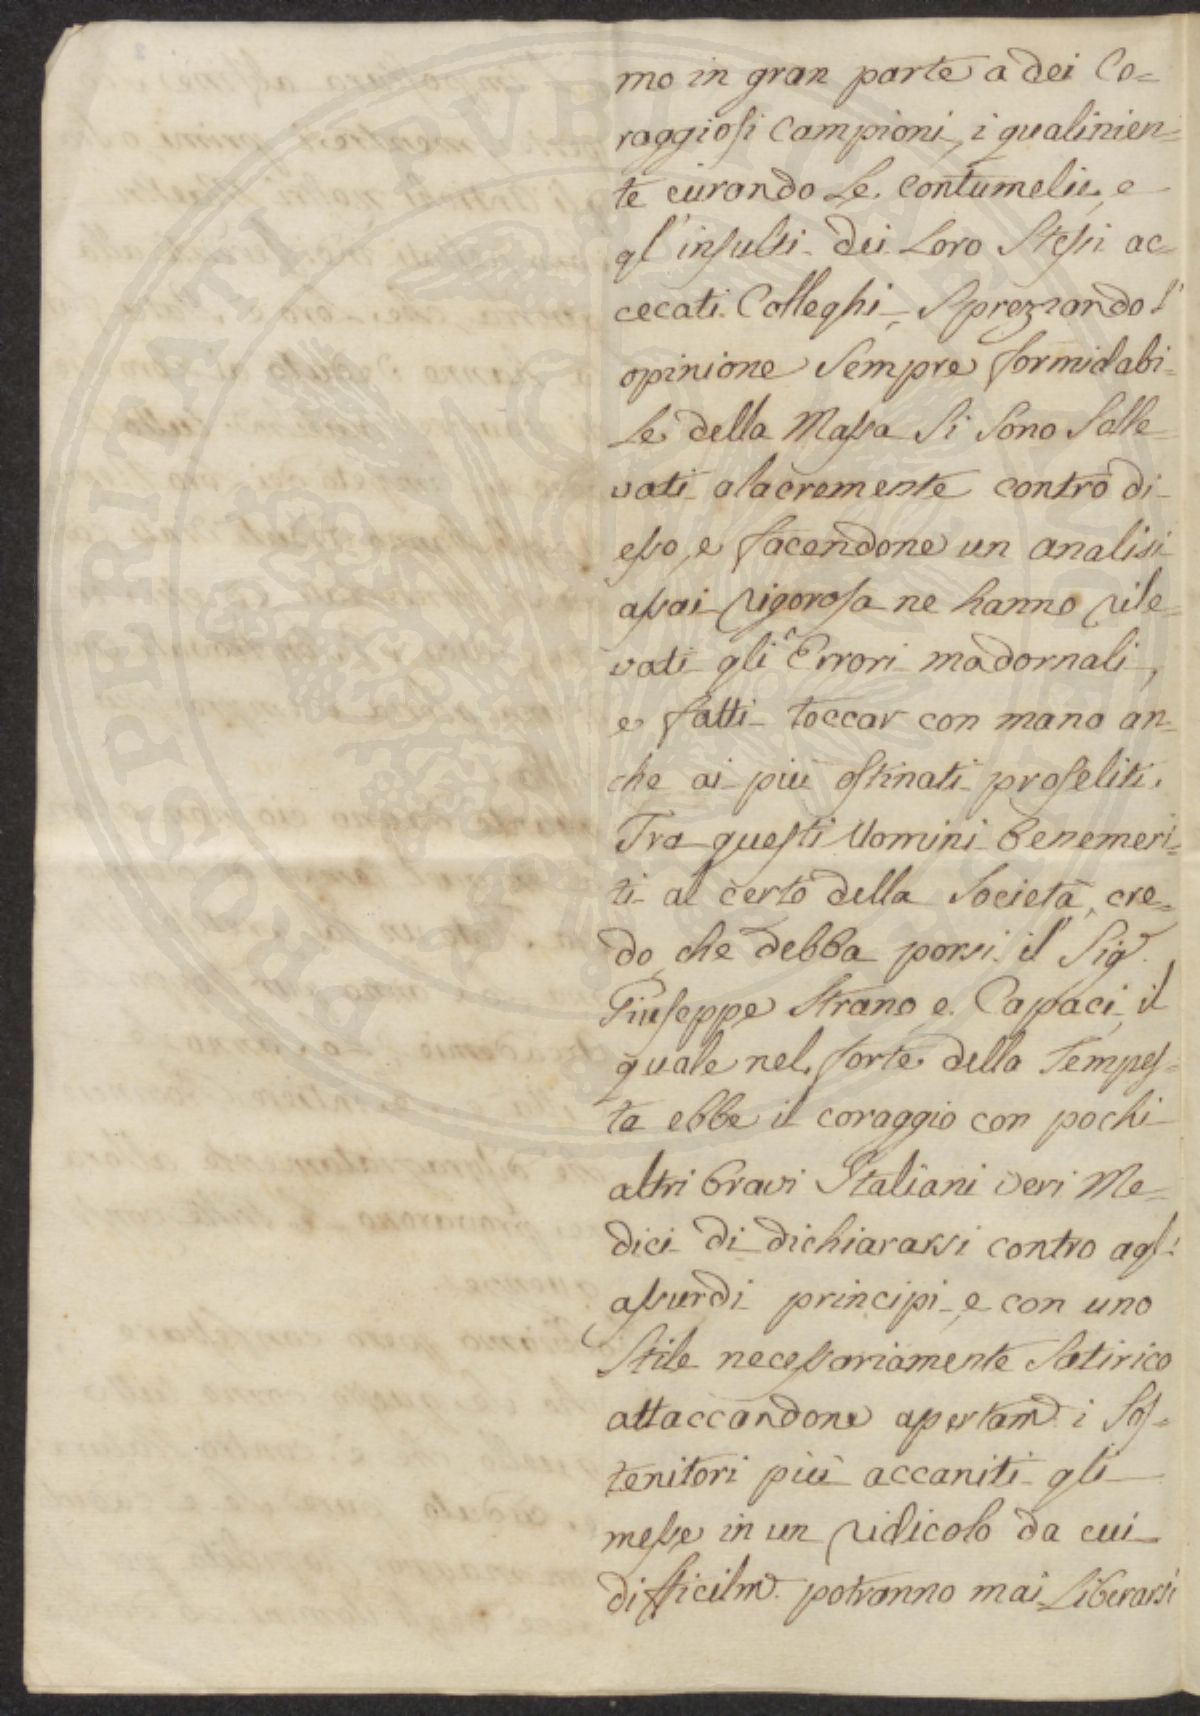 mo in gran parte a dei Co=
raggiosi Campioni, i qualinien=
te curando Le contumelie, e
gl'insulti dei Loro Stessi ac=
cecati Colleghi, Sprezzando l'
opinione Sempre formidabi=
Le della Massa Si Sono Solle=
vati alacremente contro di
esso, e facendone un analisi
assai rigorosa ne hanno rile=
vati gli Errori madornali,
e fatti toccar con mano an=
che ai più ostinati proseliti.
Tra questi Uomini Benemeri=
ti al certo della Società, cre=
do, che debba porsi il Sigr.
Giuseppe Strano e Capaci, il
quale nel forte della Tempes=
ta ebbe il coraggio con pochi
altri bravi Italiani veri Me=
dici di dichiararsi contro agl'
assurdi principi, e con uno
Stile necessariamente Satirico
attaccandone apertamte. i Sos=
tenitori più accaniti gli
messe in un ridicolo da cui
difficilmte. potranno mai Liberarsi
PROSPERITATI PVBLICAE